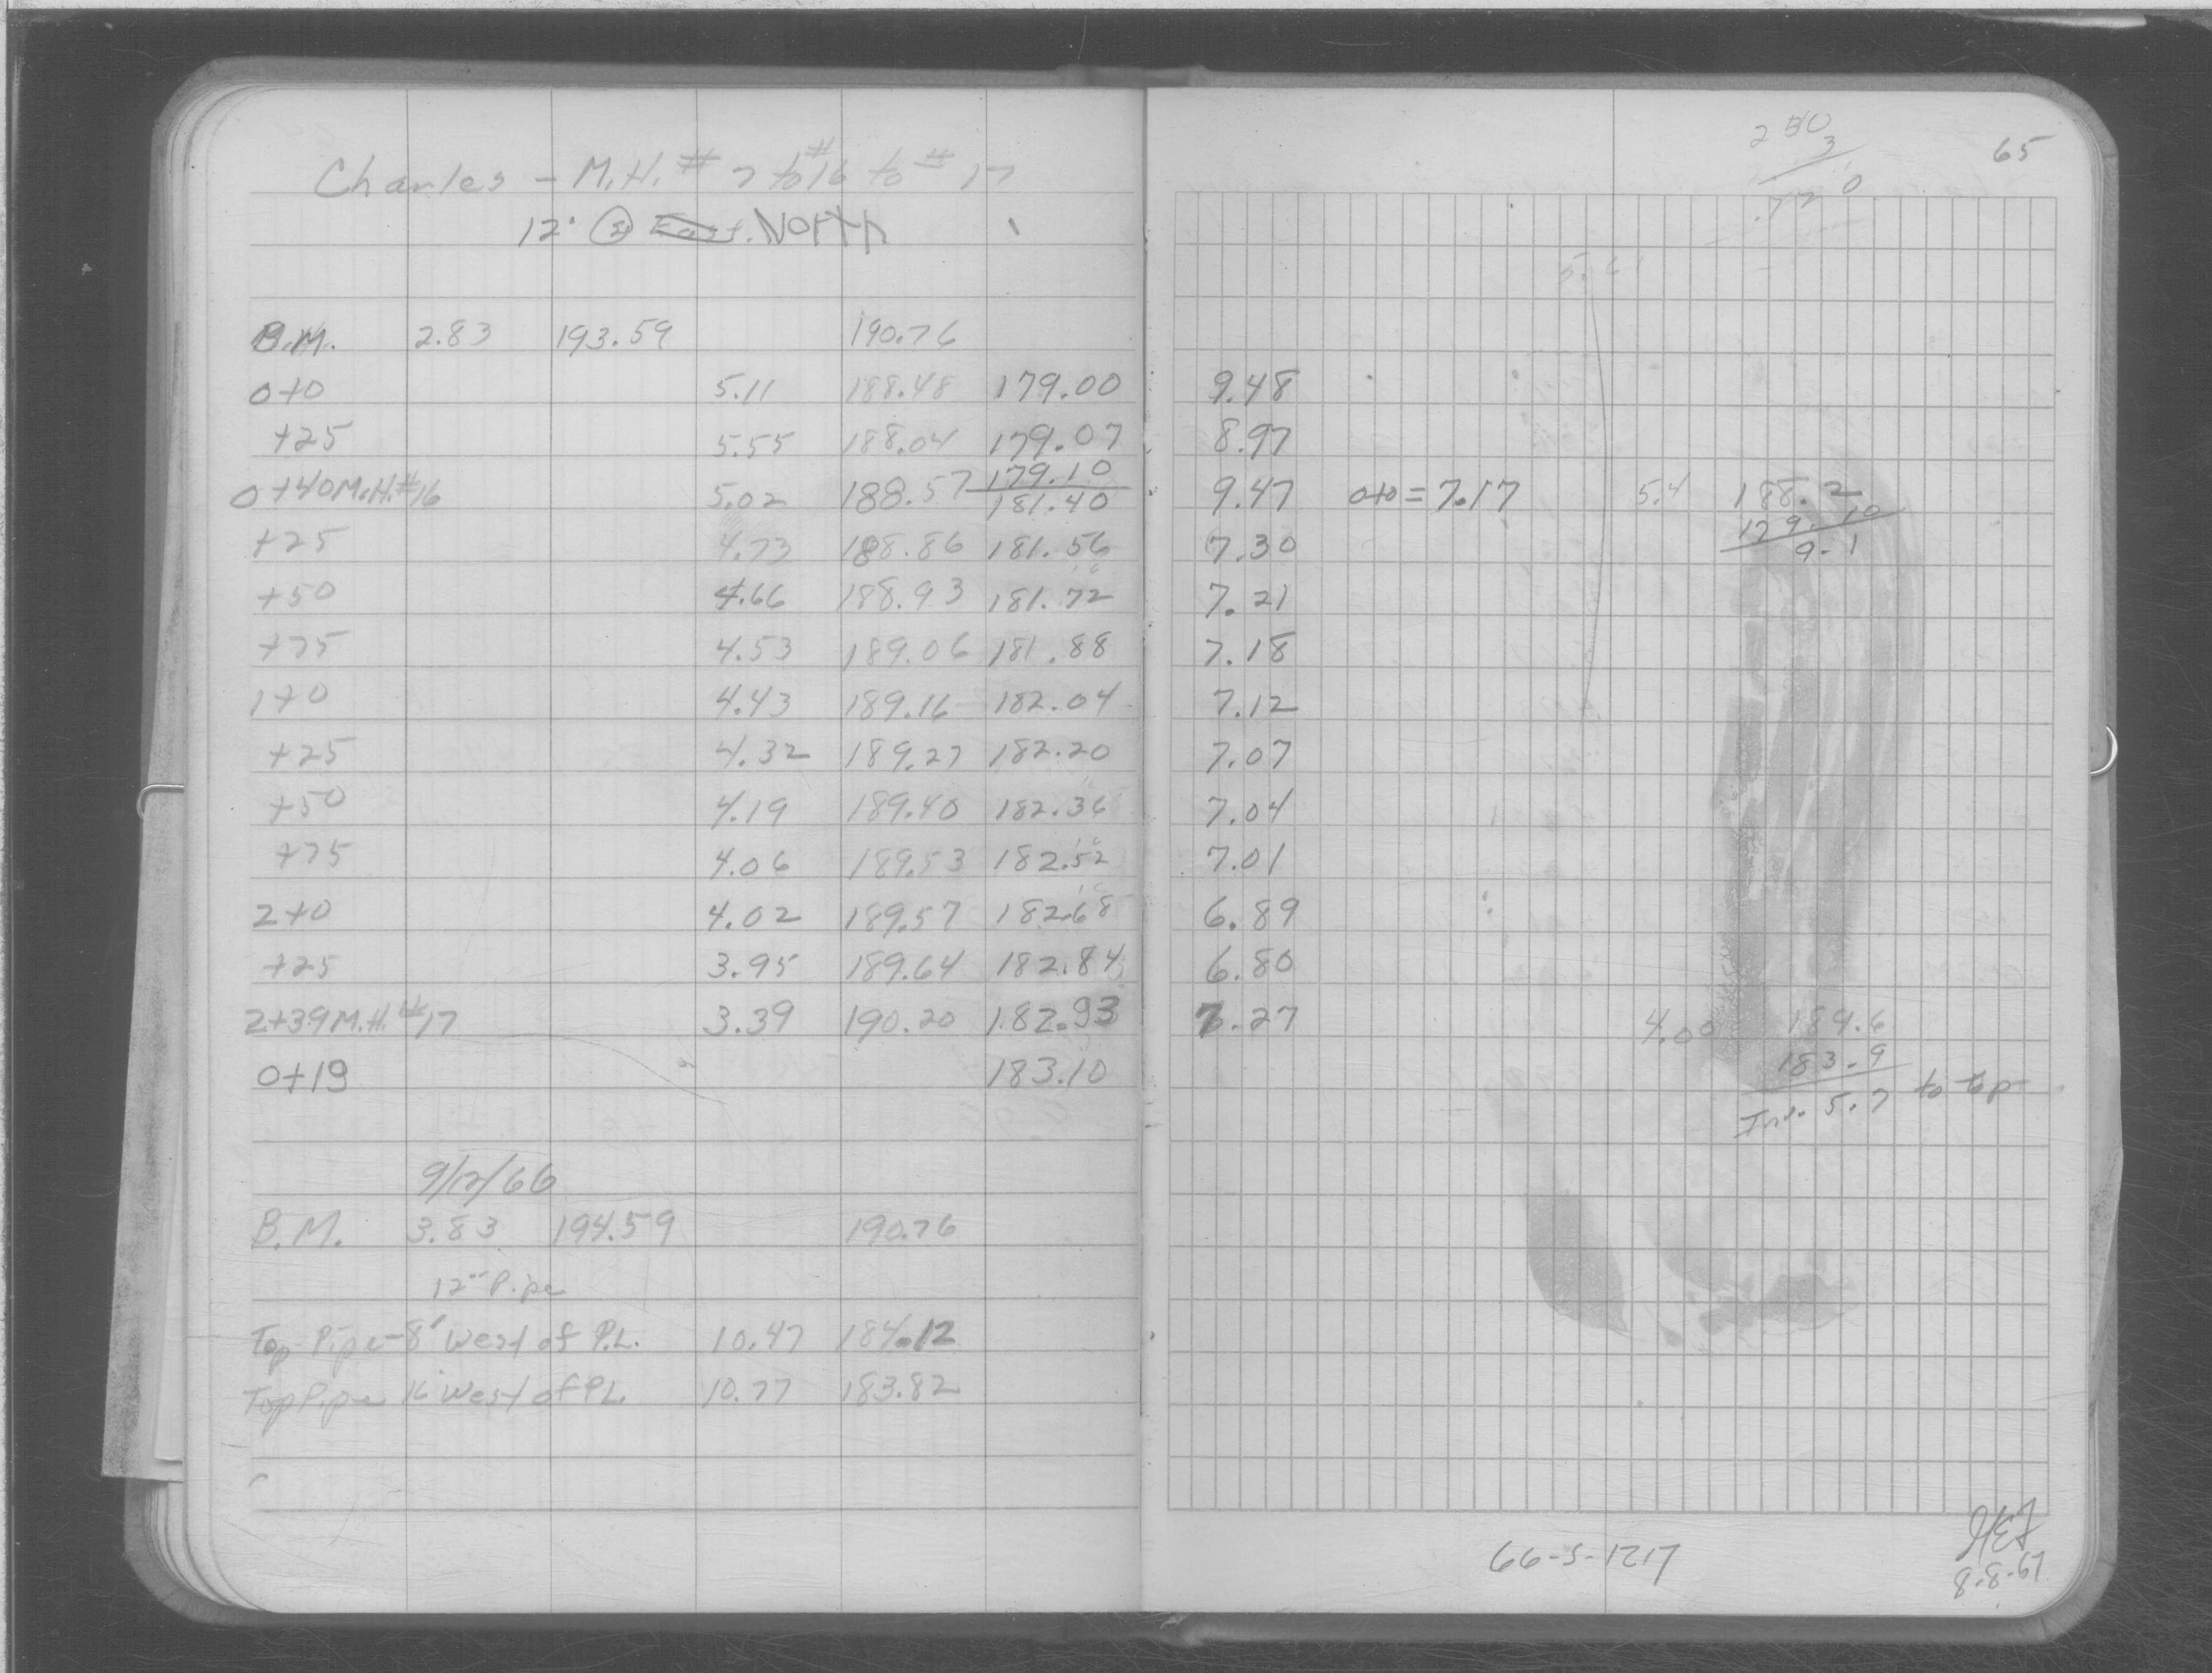 Charles - M.H. # 7 to #16 to # 17
12" @ East. North
B.M. 2.83 193.59 190.76
0+0 5.11 188.48 179.00
+25 5.55 188.04 179.07
179.10
0+40 M.H. #16 5.02 188.57 181.40
+25 4.73 188.86 181.56
+50 4.66 188.93 181.72
+75 4.53 189.06 181.88
1+0 4.43 189.16 182.04
+25 4.32 189.27 182.20
+50 4.19 189.40 182.36
+75 4.06 189.53 182.52
2+0 4.02 189.57 182.68
+25 3.95 189.64 182.84
2+39 M.H. #17 3.39 190.20 182.93
0+19 183.10
9/12/66
B.M. 3.83 194.59 190.76
12" Pipe
Top Pipe - 8' West of P.L. 10.47 184.12
Top Pipe 16' West of P.L. 10.77 183.82
65
3
5.61
9.48
8.97
9.47 0+0 = 7.17 5.4 188.2
179.10
9.1
7.30
7.21
7.18
7.12
7.07
7.04
7.01
6.89
6.80
7.27 4.00 189.6
183.9
Inv. 5.7 to top
66-S-1217
8-8-67